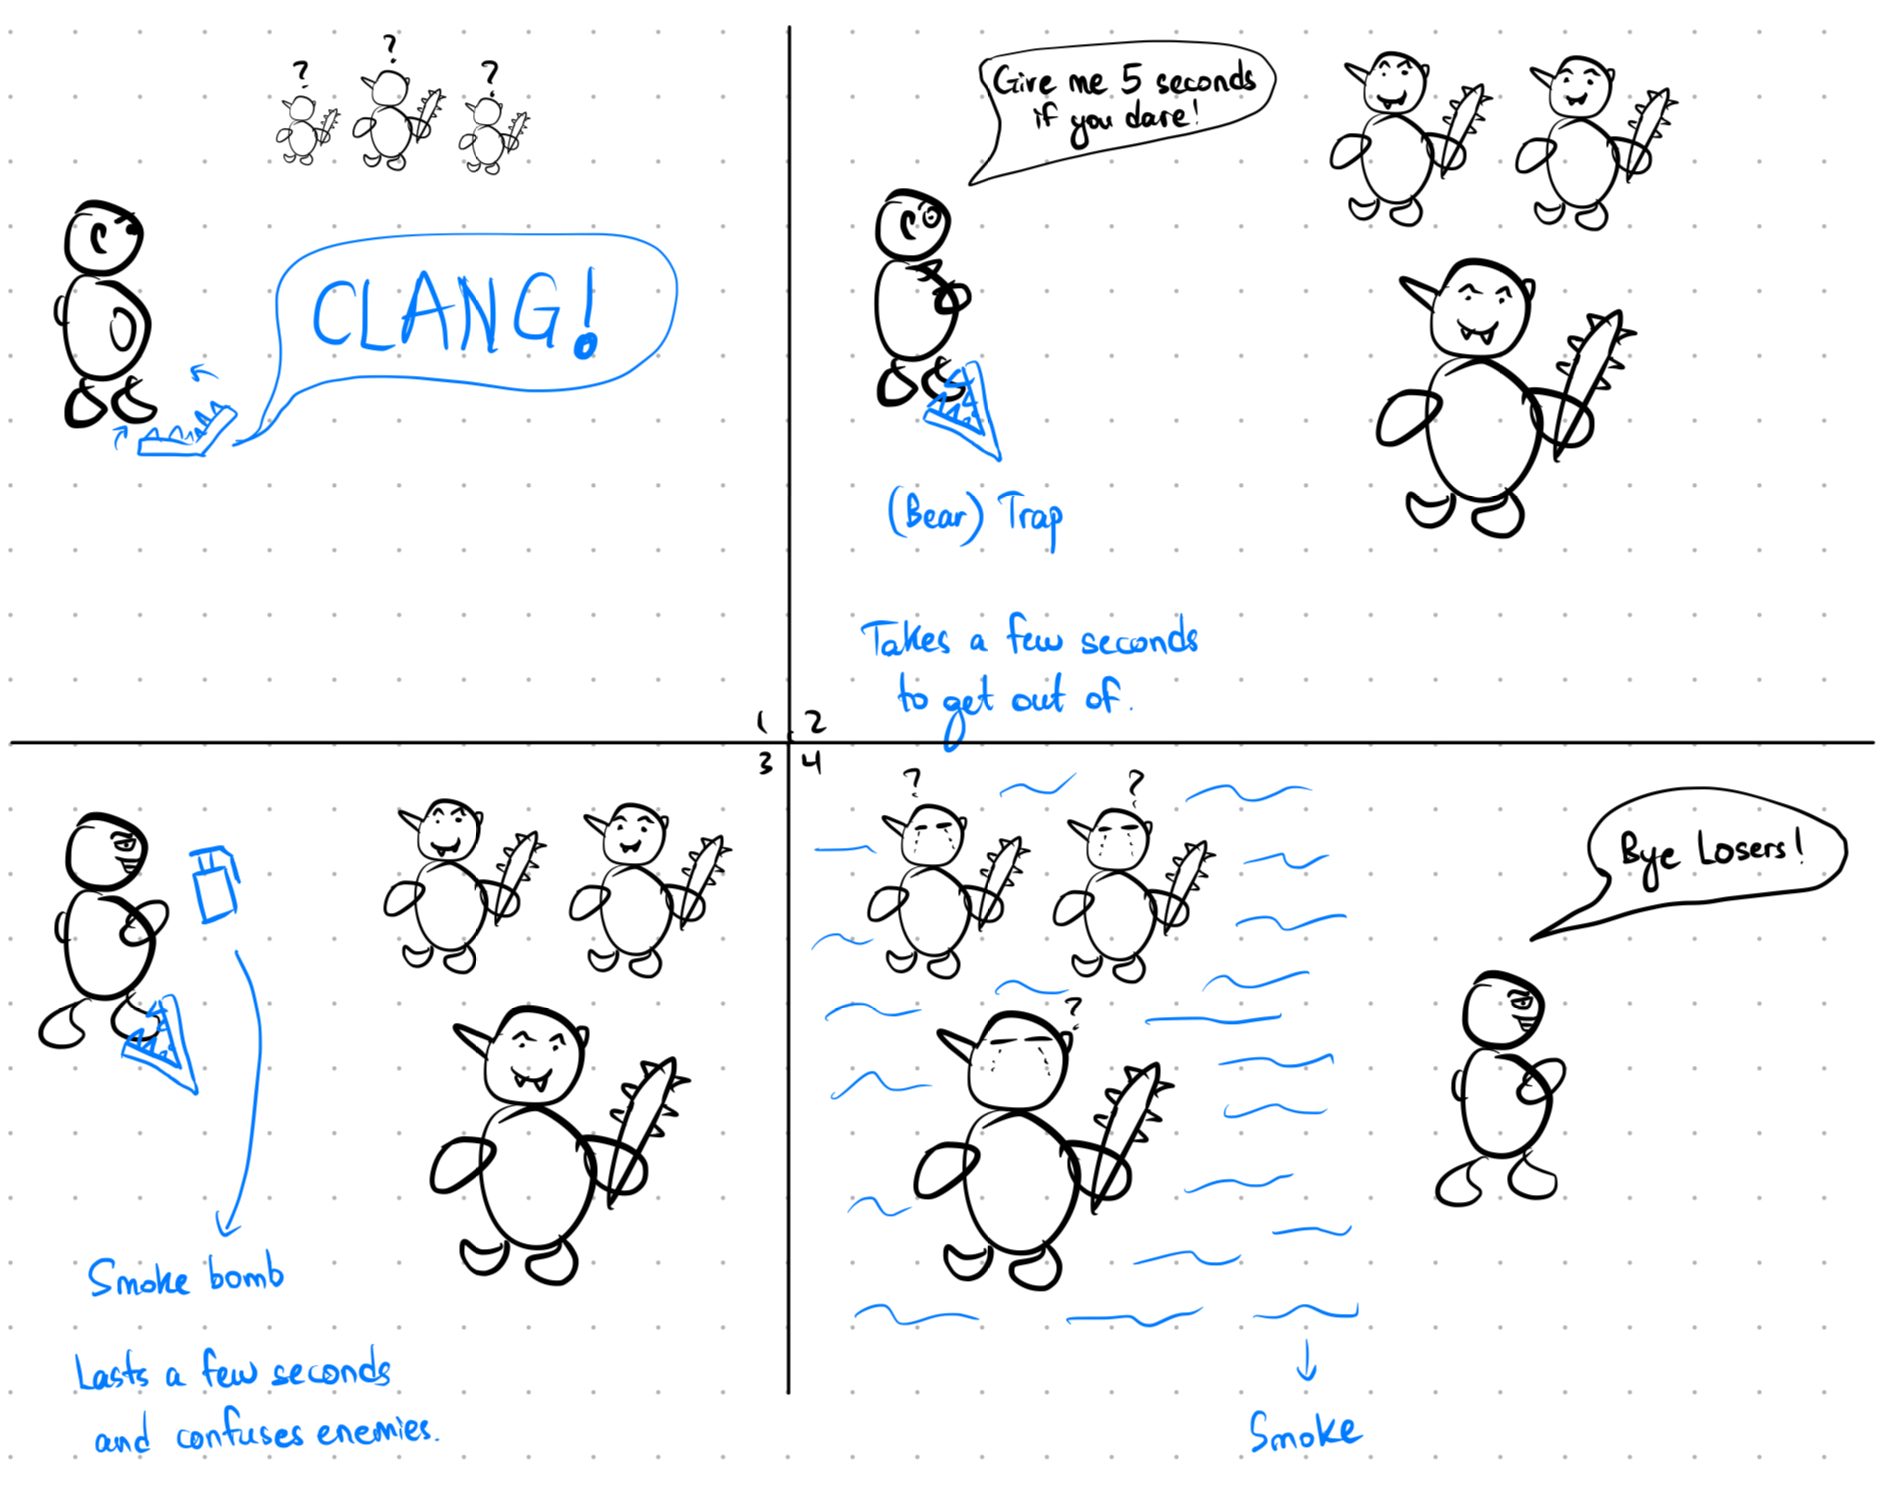 ? ? ?
CLANG!
Give me 5 seconds
if you dare!
(Bear) Trap
Takes a few seconds
to get out of.
1 2
3 4
Smoke bomb
Lasts a few seconds
and confuses enemies.
? ?
?
Bye Losers!
Smoke